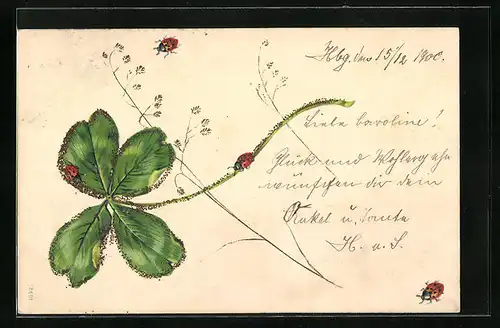 Hbg. den 15/12 1900.
Liebe Caroline!
Glück und Wohlergehn
wünschen dir dein
Onkel u. Tante
H. u. S.